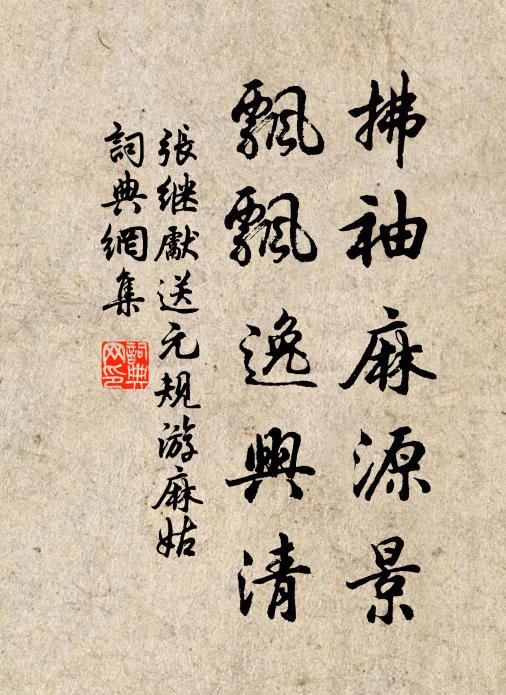 拂袖麻源景
飄飄逸興清
張继獻送元规游麻姑
詞典網集
詞典
网印